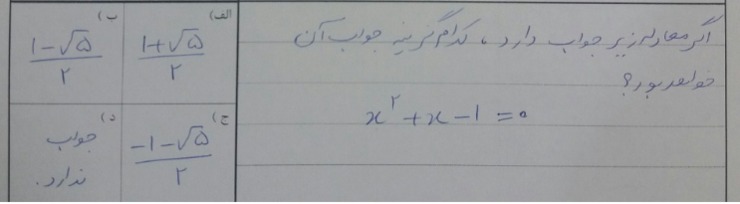 اگر معادله زیر جواب دارد، کدام گزینه جواب آن
خواهد بود؟
x² + x - ۱ = ۰
الف) (۱+√۵)/۲
ب) (۱-√۵)/۲
ج) (-۱-√۵)/۲
د) جواب
ندارد.